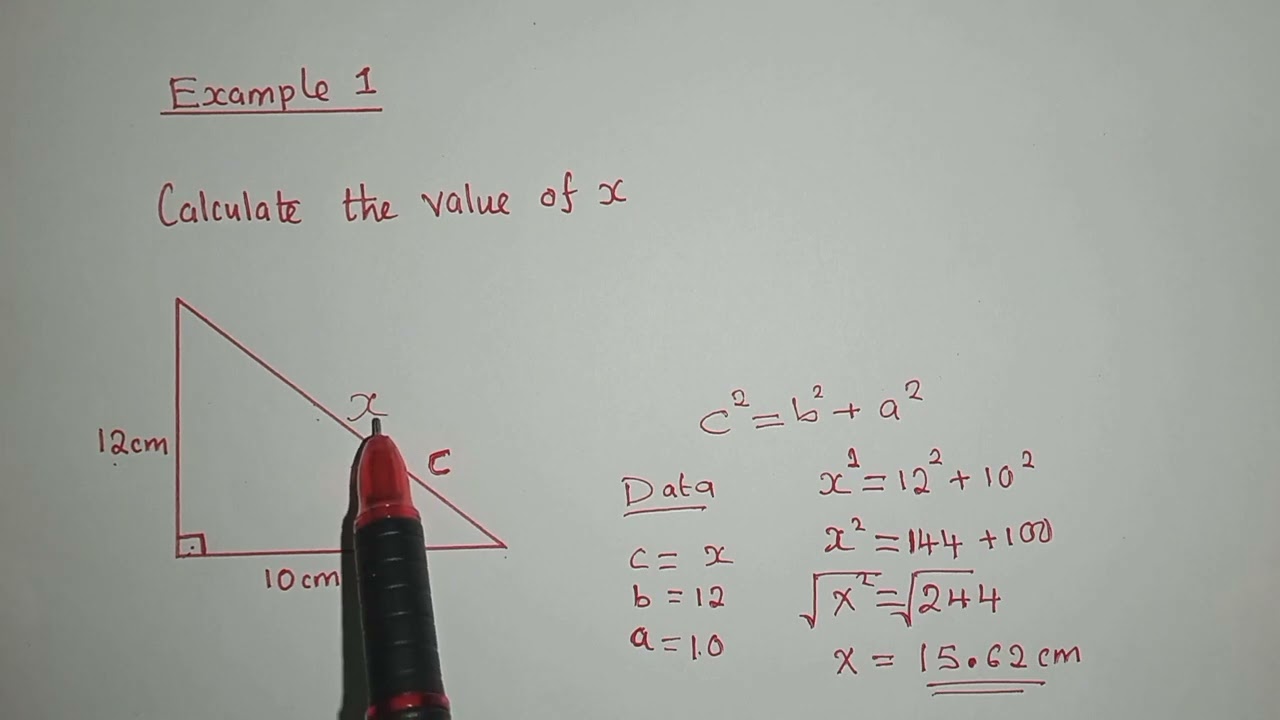 Example 1
Calculate the value of x
x
12cm
C
10cm
c² = b² + a²
Data
x¹ = 12² + 10²
c = x
x² = 144 + 100
b = 12
√x² = √244
a = 1.0
x = 15.62 cm